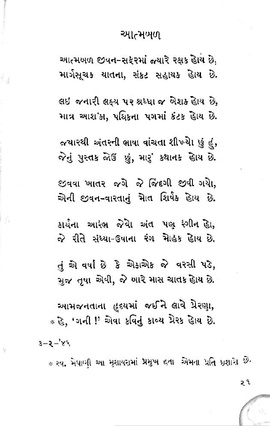 આત્મબળ
આત્મબળ જીવન-સફરમાં જ્યારે રક્ષક હોય છે,
માર્ગસૂચક યાતના, સંકટ સહાયક હોય છે.
લઇ જનારી લક્ષ્ય પર શ્રધ્ધા જ બેશક હોય છે,
માત્ર આશંકા, પથિકના પગમાં કંટક હોય છે.
જ્યારથી અંતરની ભાષા વાંચતા શીખ્યો છું હું,
જેનું પુસ્તક જોઉં છું, મારું કથાનક હોય છે.
જીવવા ખાતર જગે જે જિંદગી જીવી ગયો,
એની જીવન-વારતાનું મોત શિર્ષક હોય છે.
કાર્યના આરંભ જેવો અંત પણ રંગીન હો,
જે રીતે સંધ્યા-ઉષાના રંગ મોહક હોય છે.
તું એ વર્ષા છે કે એકાએક જે વરસી પડે,
મુજ તૃષા એવી, જે બારે માસ ચાતક હોય છે.
આમજનતાના હૃદયમાં જઈને લાવે પ્રેરણા,
* હે, 'ગની !' એવા કવિનું કાવ્ય પ્રેરક હોય છે.
૩-૨-'૪૬
* સ્વ. મેઘાણી આ મુશાયરામાં પ્રમુખ હતા એમના પ્રતિ ઇશારો છે.
૨૧